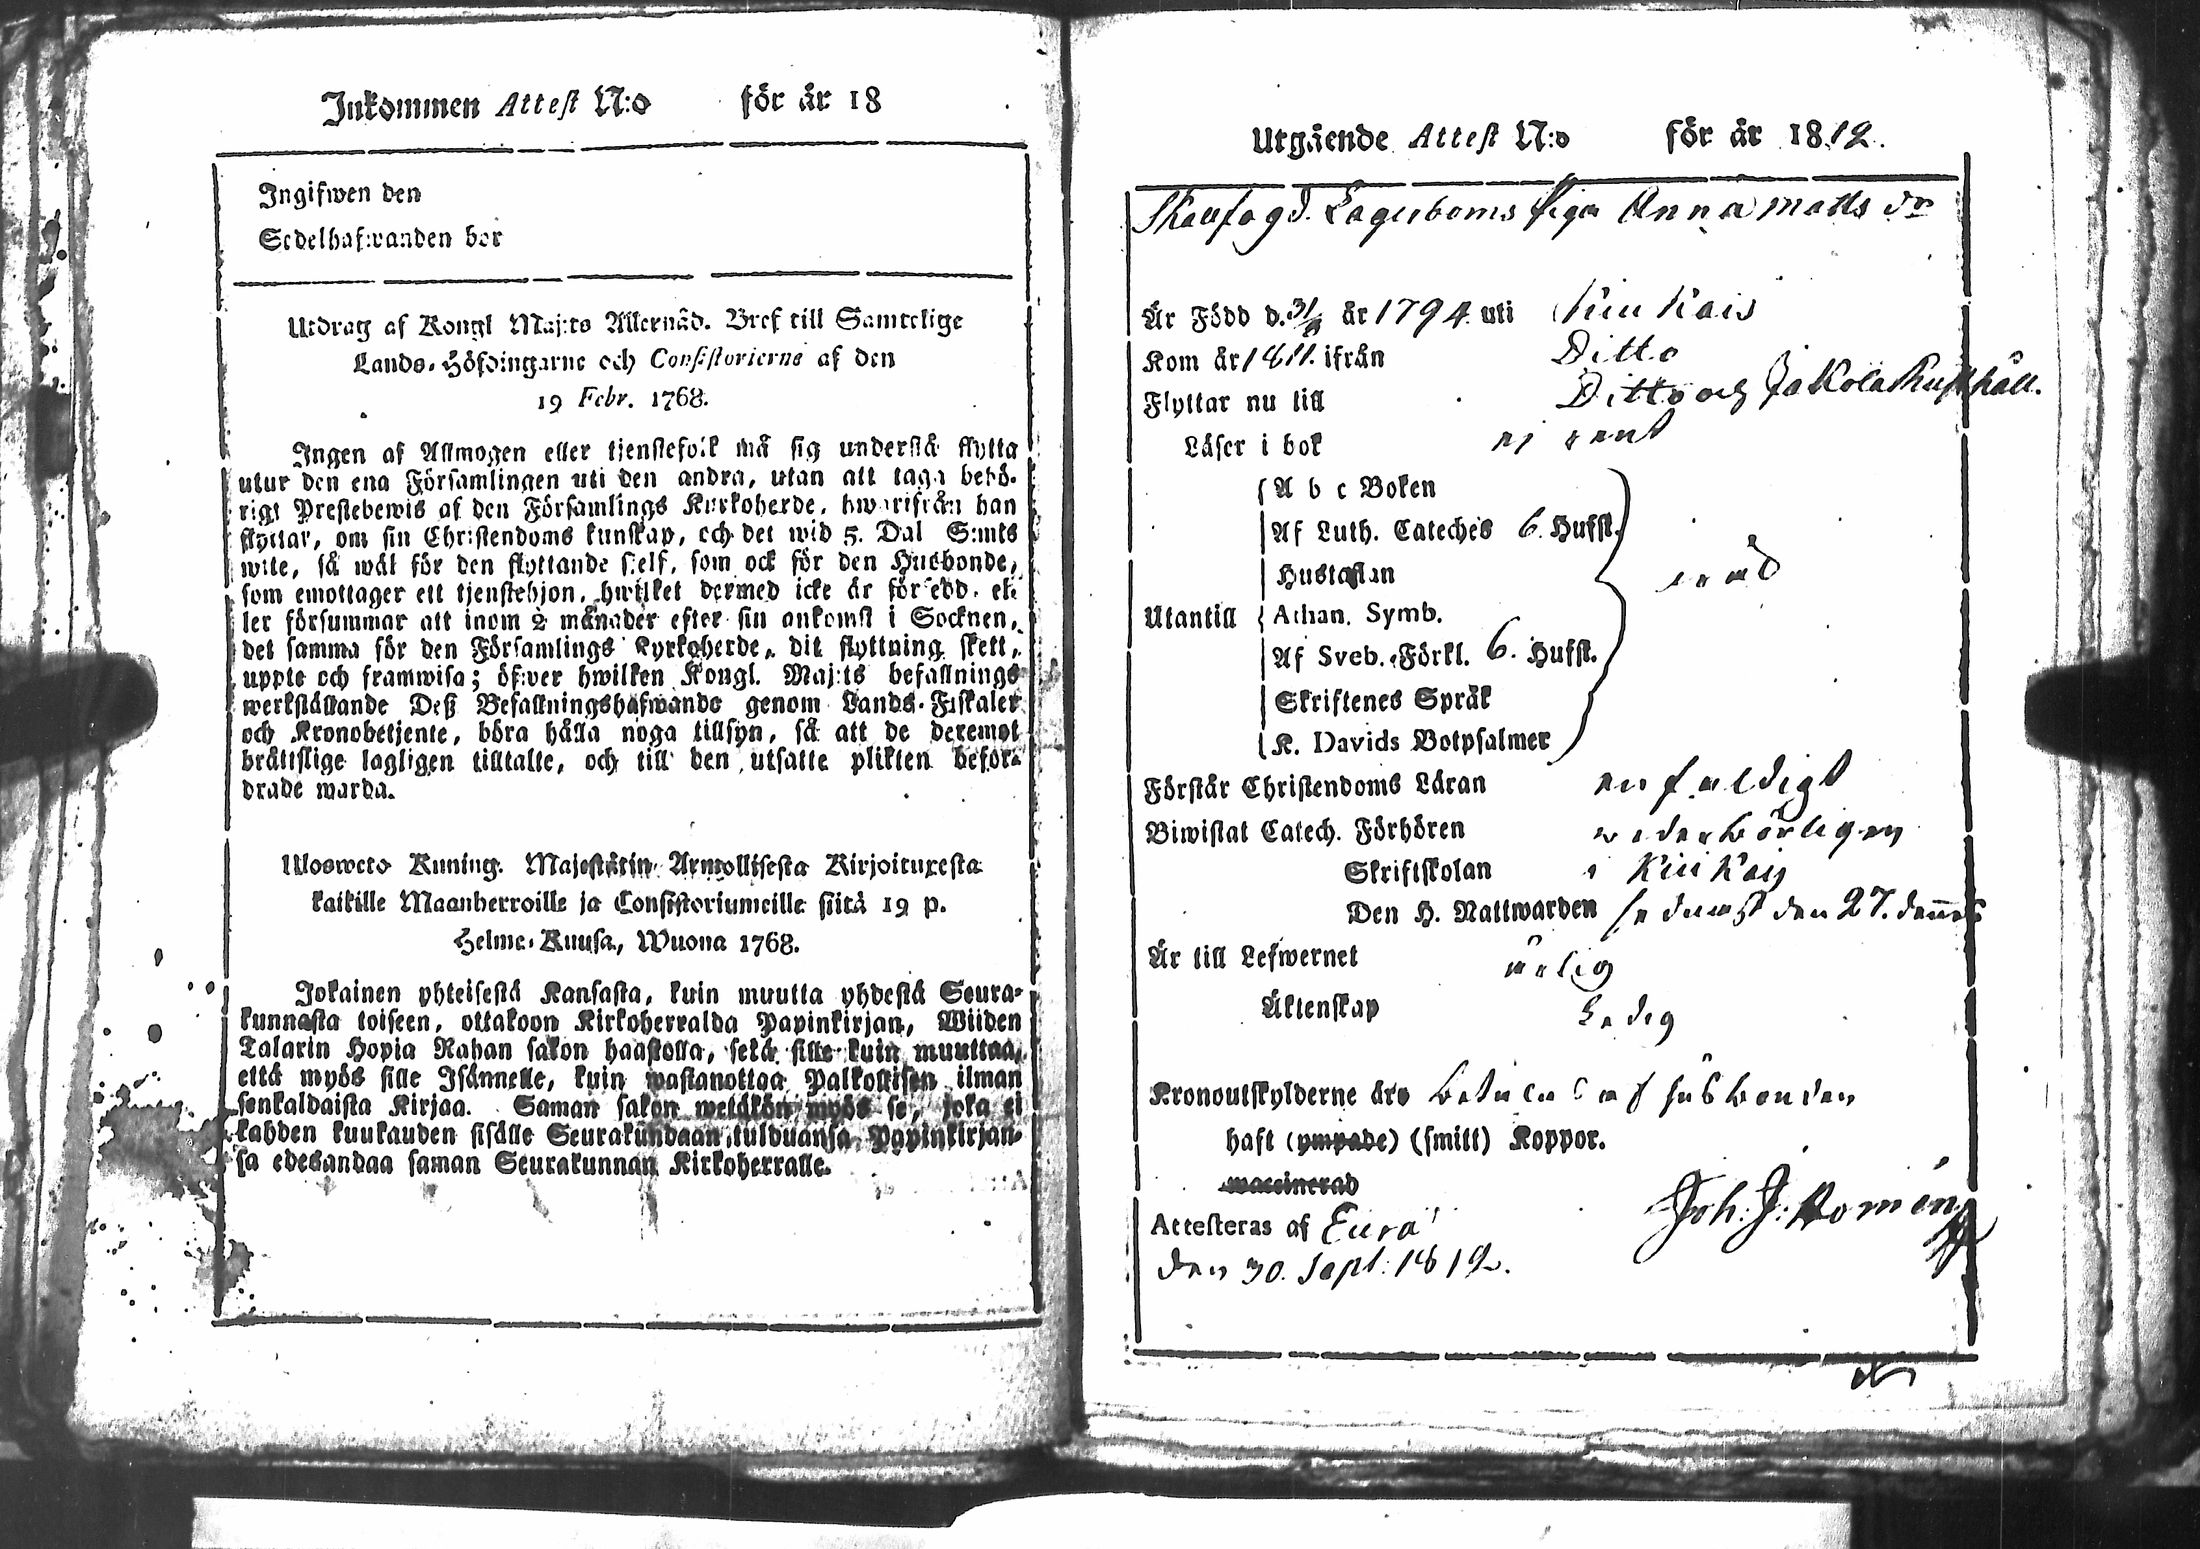 Inkommen Attest N:o för år 18
Ingifwen den
Sedelhafwanden bor
Utdrag af Kongl Maj:ts Allernåd. Bref till Samtelige
Lands-Höfdingarne och Consistorierne af den
19 Febr. 1768.
Ingen af Allmogen eller tjenstefolk må sig understå flytta
utur den ena Församlingen uti den andra, utan att taga behö-
rigt Prestebewis af den Församlings Kyrkoherde, hwarifrån han
flyttar, om sin Christendoms kunskap, och det wid 5. Dal S:mts
wite, så wäl för den flyttande sielf, som ock för den Husbonde,
som emottager ett tjenstehjon, hwilket dermed icke är försedd, el-
ler försummar att inom 2 månader efter sin ankomst i Socknen,
det samma för den Församlings Kyrkoherde, dit flyttning skett,
uppte och framwisa; öfwer hwilken Kongl. Maj:ts befallnings
werkställande Deß Befallningshafwande genom Lands-Fiskaler
och Kronobetjente, böra hålla noga tillsyn, så att de deremot
bråttslige lagligen tilltalte, och till den utsatte plikten befor-
drade warda.
Ulosweto Kuning. Majestätin Armollisesta Kirjoituxesta
kaikille Maanherroille ja Consistoriumeille siitä 19 p.
Helme-Kuusa, Wuona 1768.
Jokainen yhteisestä Kansasta, kuin muutta yhdestä Seura-
kunnasta toiseen, ottakoon Kirkoherralda Papinkirjan, Wiiden
Talarin Hopia Rahan sakon haastolla, sekä sille kuin muuttaa,
että myös sille Isännelle, kuin wastanottaa Palkollisen ilman
senkaldaista Kirjaa. Saman sakon wetäkön myös se, joka ei
kahden kuukauden sisälle Seurakundaan tulduansa Papinkirjan-
sa edesandaa saman Seurakunnan Kirkoherralle.
Utgående Attest N:o för år 1812.
Skoufogd. Lagerboms Piga Anna Matts dr
Är Född d. 31/8 år 1794 uti Kiukais
Kom år 1811. ifrån Ditto
Flyttar nu till Ditto och Jakola Rusthåll.
Läser i bok ej rent
A b c Boken
Af Luth. Cateches 6. Hufst.
Hustaflan
Utantill Athan. Symb.
Af Sveb. Förkl. 6. Hufst.
Skriftenes Språk
K. Davids Botpsalmer
Förstår Christendoms Läran enfaldigt
Biwistat Catech. Förhören wederbörligen
Skriftskolan i Kiukais
Den H. Nattwarden sedenast den 27. dennes
Är till Lefwernet ärlig
Äktenskap Ledig
Kronoutskylderne äro betalas af husbonden
haft (ympade) (smitt) Koppor.
waccinerad
Attesteras af Eura
den 30. Sept: 1812.